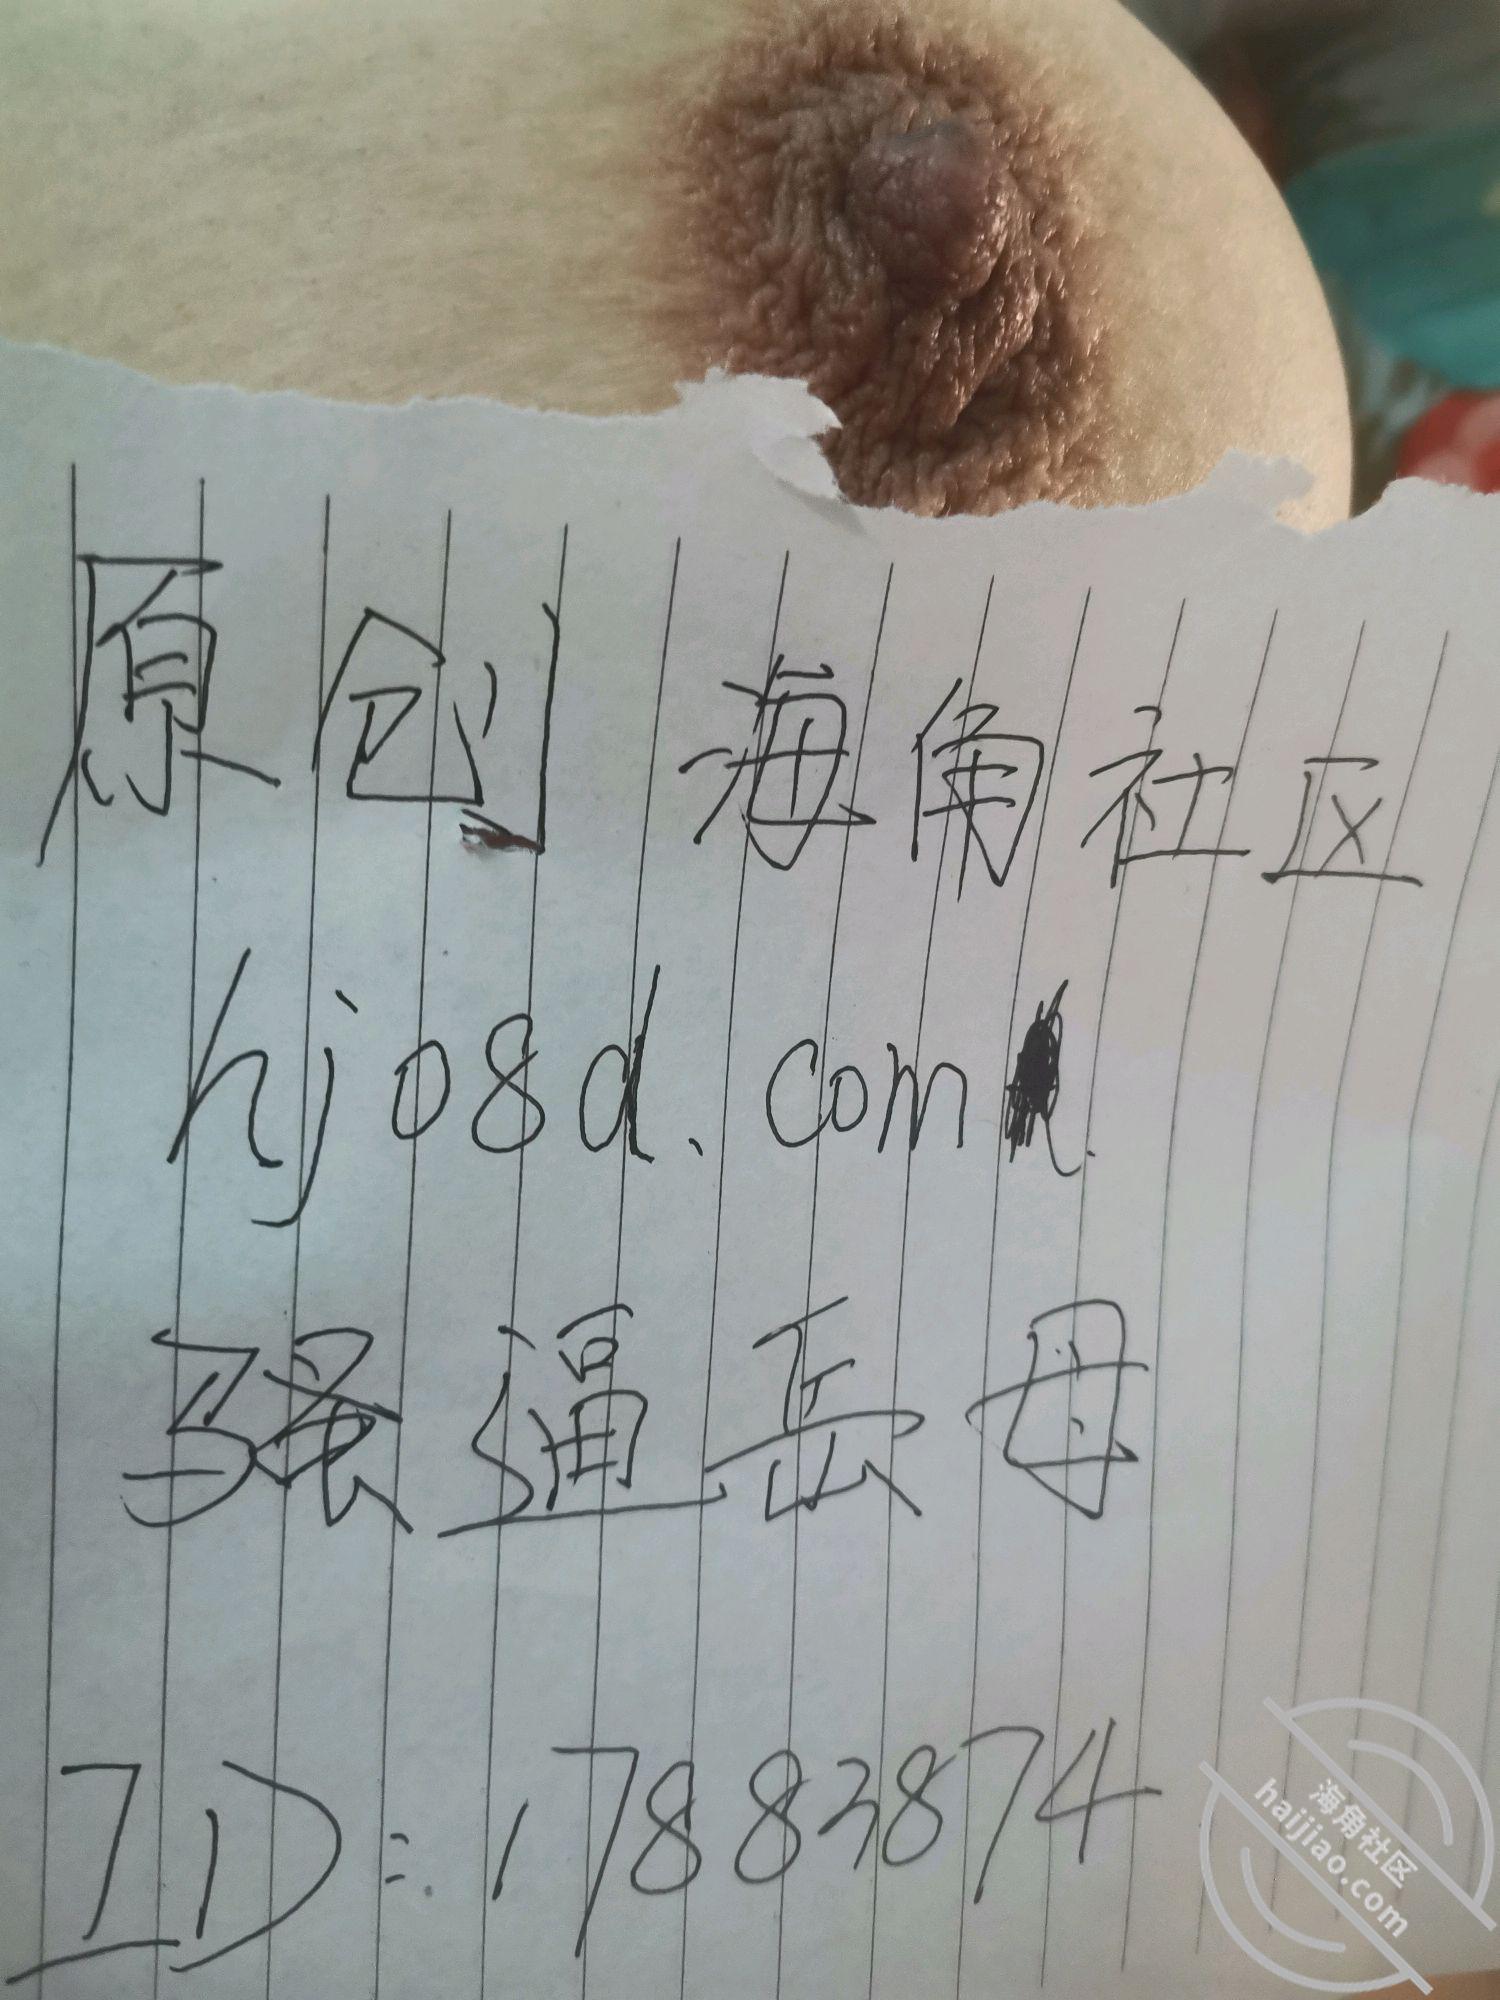 原创 海角社区
hj08d.com
骚逼岳母
ID:17883874
海角社区
haijiao.com